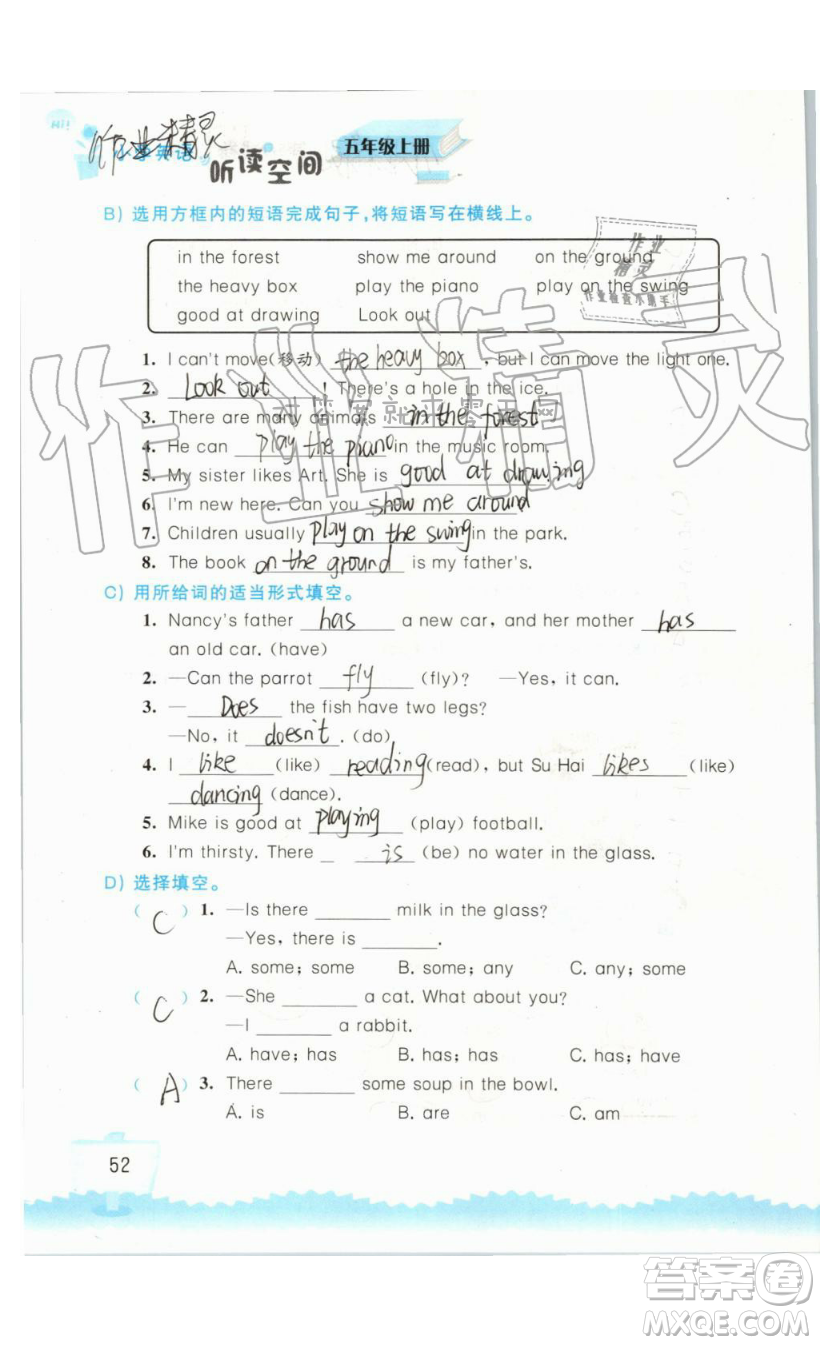 Hi!
作业精灵
小学英语
听读空间
五年级上册
B) 选用方框内的短语完成句子,将短语写在横线上。
in the forest show me around on the ground
the heavy box play the piano play on the swing
good at drawing Look out
作业精灵
作业检查小助手
1. I can't move(移动) the heavy box , but I can move the light one.
2. Look out ! There's a hole in the ice.
3. There are many animals in the forest .
4. He can play the piano in the music room.
5. My sister likes Art. She is good at drawing
6. I'm new here. Can you show me around
7. Children usually play on the swing in the park.
8. The book on the ground is my father's.
作业精灵
C) 用所给词的适当形式填空。
1. Nancy's father has a new car, and her mother has
an old car. (have)
2. —Can the parrot fly (fly)? —Yes, it can.
3. — Does the fish have two legs?
—No, it doesn't . (do)
4. I like (like) reading (read), but Su Hai likes (like)
dancing (dance).
5. Mike is good at playing (play) football.
6. I'm thirsty. There is (be) no water in the glass.
D) 选择填空。
( C ) 1. —Is there ______ milk in the glass?
—Yes, there is ______.
A. some; some B. some; any C. any; some
( C ) 2. —She ______ a cat. What about you?
—I ______ a rabbit.
A. have; has B. has; has C. has; have
( A ) 3. There ______ some soup in the bowl.
A. is B. are C. am
52
答案卷
MXQE.COM